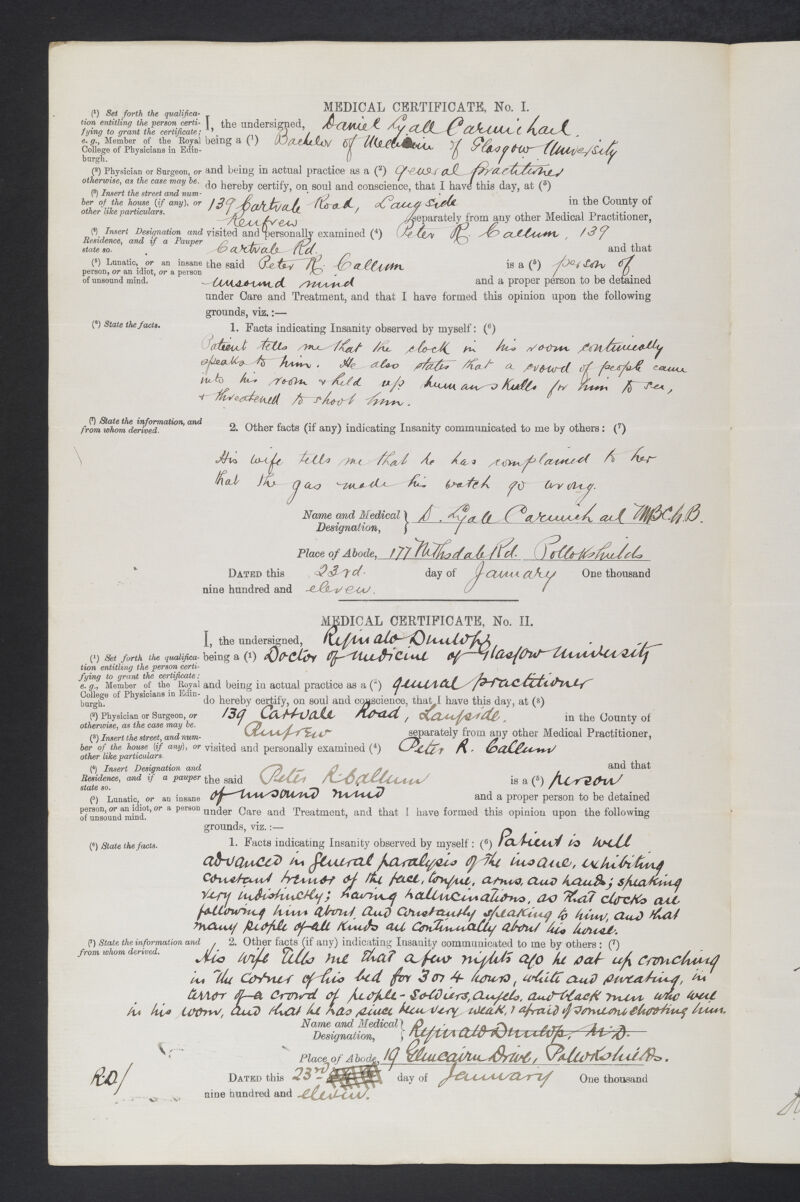 MEDICAL CERTIFICATE, No. I.
(¹) Set forth the qualifica-
tion entitling the person certi-
fying to grant the certificate;
e.g., Member of the Royal
College of Physicians in Edin-
burgh.
I, the undersigned, Daniel Lyall Carmichael.
being a (¹) Bachelor of Medicine of Glasgow University
(²) Physician or Surgeon, or
otherwise, as the case may be.
and being in actual practice as a (²) general practitioner
do hereby certify, on soul and conscience, that I have this day, at (³)
(³) Insert the street and num-
ber of the house (if any), or
other like particulars.
139 Cartvale Road, Langside in the County of
Renfrew separately from any other Medical Practitioner,
(⁴) Insert Designation and
Residence, and if a Pauper
state so.
visited and personally examined (⁴) Peter R. Callum, 139
Cartvale Rd. and that
(⁵) Lunatic, or an insane
person, or an idiot, or a person
of unsound mind.
the said Peter R. Callum is a (⁵) person of
unsound mind and a proper person to be detained
under Care and Treatment, and that I have formed this opinion upon the following
grounds, viz.:—
(⁶) State the facts.
1. Facts indicating Insanity observed by myself: (⁶)
Patient tells me that the clock in his room continually
speaks to him. He also states that a crowd of people came
into his room & held up human skulls for him to see,
& threatened to shoot him.
(⁷) State the information, and
from whom derived.
2. Other facts (if any) indicating Insanity communicated to me by others: (⁷)
His wife tells me that he has complained to her
that the gas made his watch go wrong.
Name and Medical
Designation, D. Lyall Carmichael M.B.Ch.B.
Place of Abode, 177 Nithsdale Rd. Pollokshields
DATED this 23rd. day of January One thousand
nine hundred and eleven.
MEDICAL CERTIFICATE, No. II.
I, the undersigned, Reginald Dunlop,
(¹) Set forth the qualifica-
tion entitling the person certi-
fying to grant the certificate;
e.g., Member of the Royal
College of Physicians in Edin-
burgh.
being a (¹) Doctor of Medicine of Glasgow University
and being in actual practice as a (²) general practitioner
do hereby certify, on soul and conscience, that I have this day, at (³)
(²) Physician or Surgeon, or
otherwise, as the case may be.
139 Cartvale Road, Langside, in the County of
(³) Insert the street, and num-
ber of the house (if any), or
other like particulars.
Renfrew separately from any other Medical Practitioner,
visited and personally examined (⁴) Peter R. Callum
(⁴) Insert Designation and
Residence, and if a pauper
state so.
and that
the said Peter R. Callum is a (⁵) person
(⁵) Lunatic, or an insane
person, or an idiot, or a person
of unsound mind.
of unsound mind and a proper person to be detained
under Care and Treatment, and that I have formed this opinion upon the following
grounds, viz.:—
(⁶) State the facts.
1. Facts indicating Insanity observed by myself: (⁶) Patient is well
advanced in general paralysis of the insane, exhibiting
constant tremor of the face, tongue, arms, and hands; speaking
very indistinctly; having hallucinations, as that clocks are
following him about and constantly speaking to him, and that
many people of all kinds are continually about his house.
(⁷) State the information and
from whom derived.
2. Other facts (if any) indicating Insanity communicated to me by others: (⁷)
His wife tells me that a few nights ago he sat up crouching
in the corner of his bed for 3 or 4 hours, white and sweating, in
terror of a crowd of people – soldiers, angels, and black men who were
in his room, and that he has since been very weak, & afraid of someone shooting him.
Name and Medical
Designation, Reginald Dunlop, M.D.
Place of Abode, 19 Glencairn Drive, Pollokshields.
RD/
DATED this 23rd day of January One thousand
nine hundred and eleven.